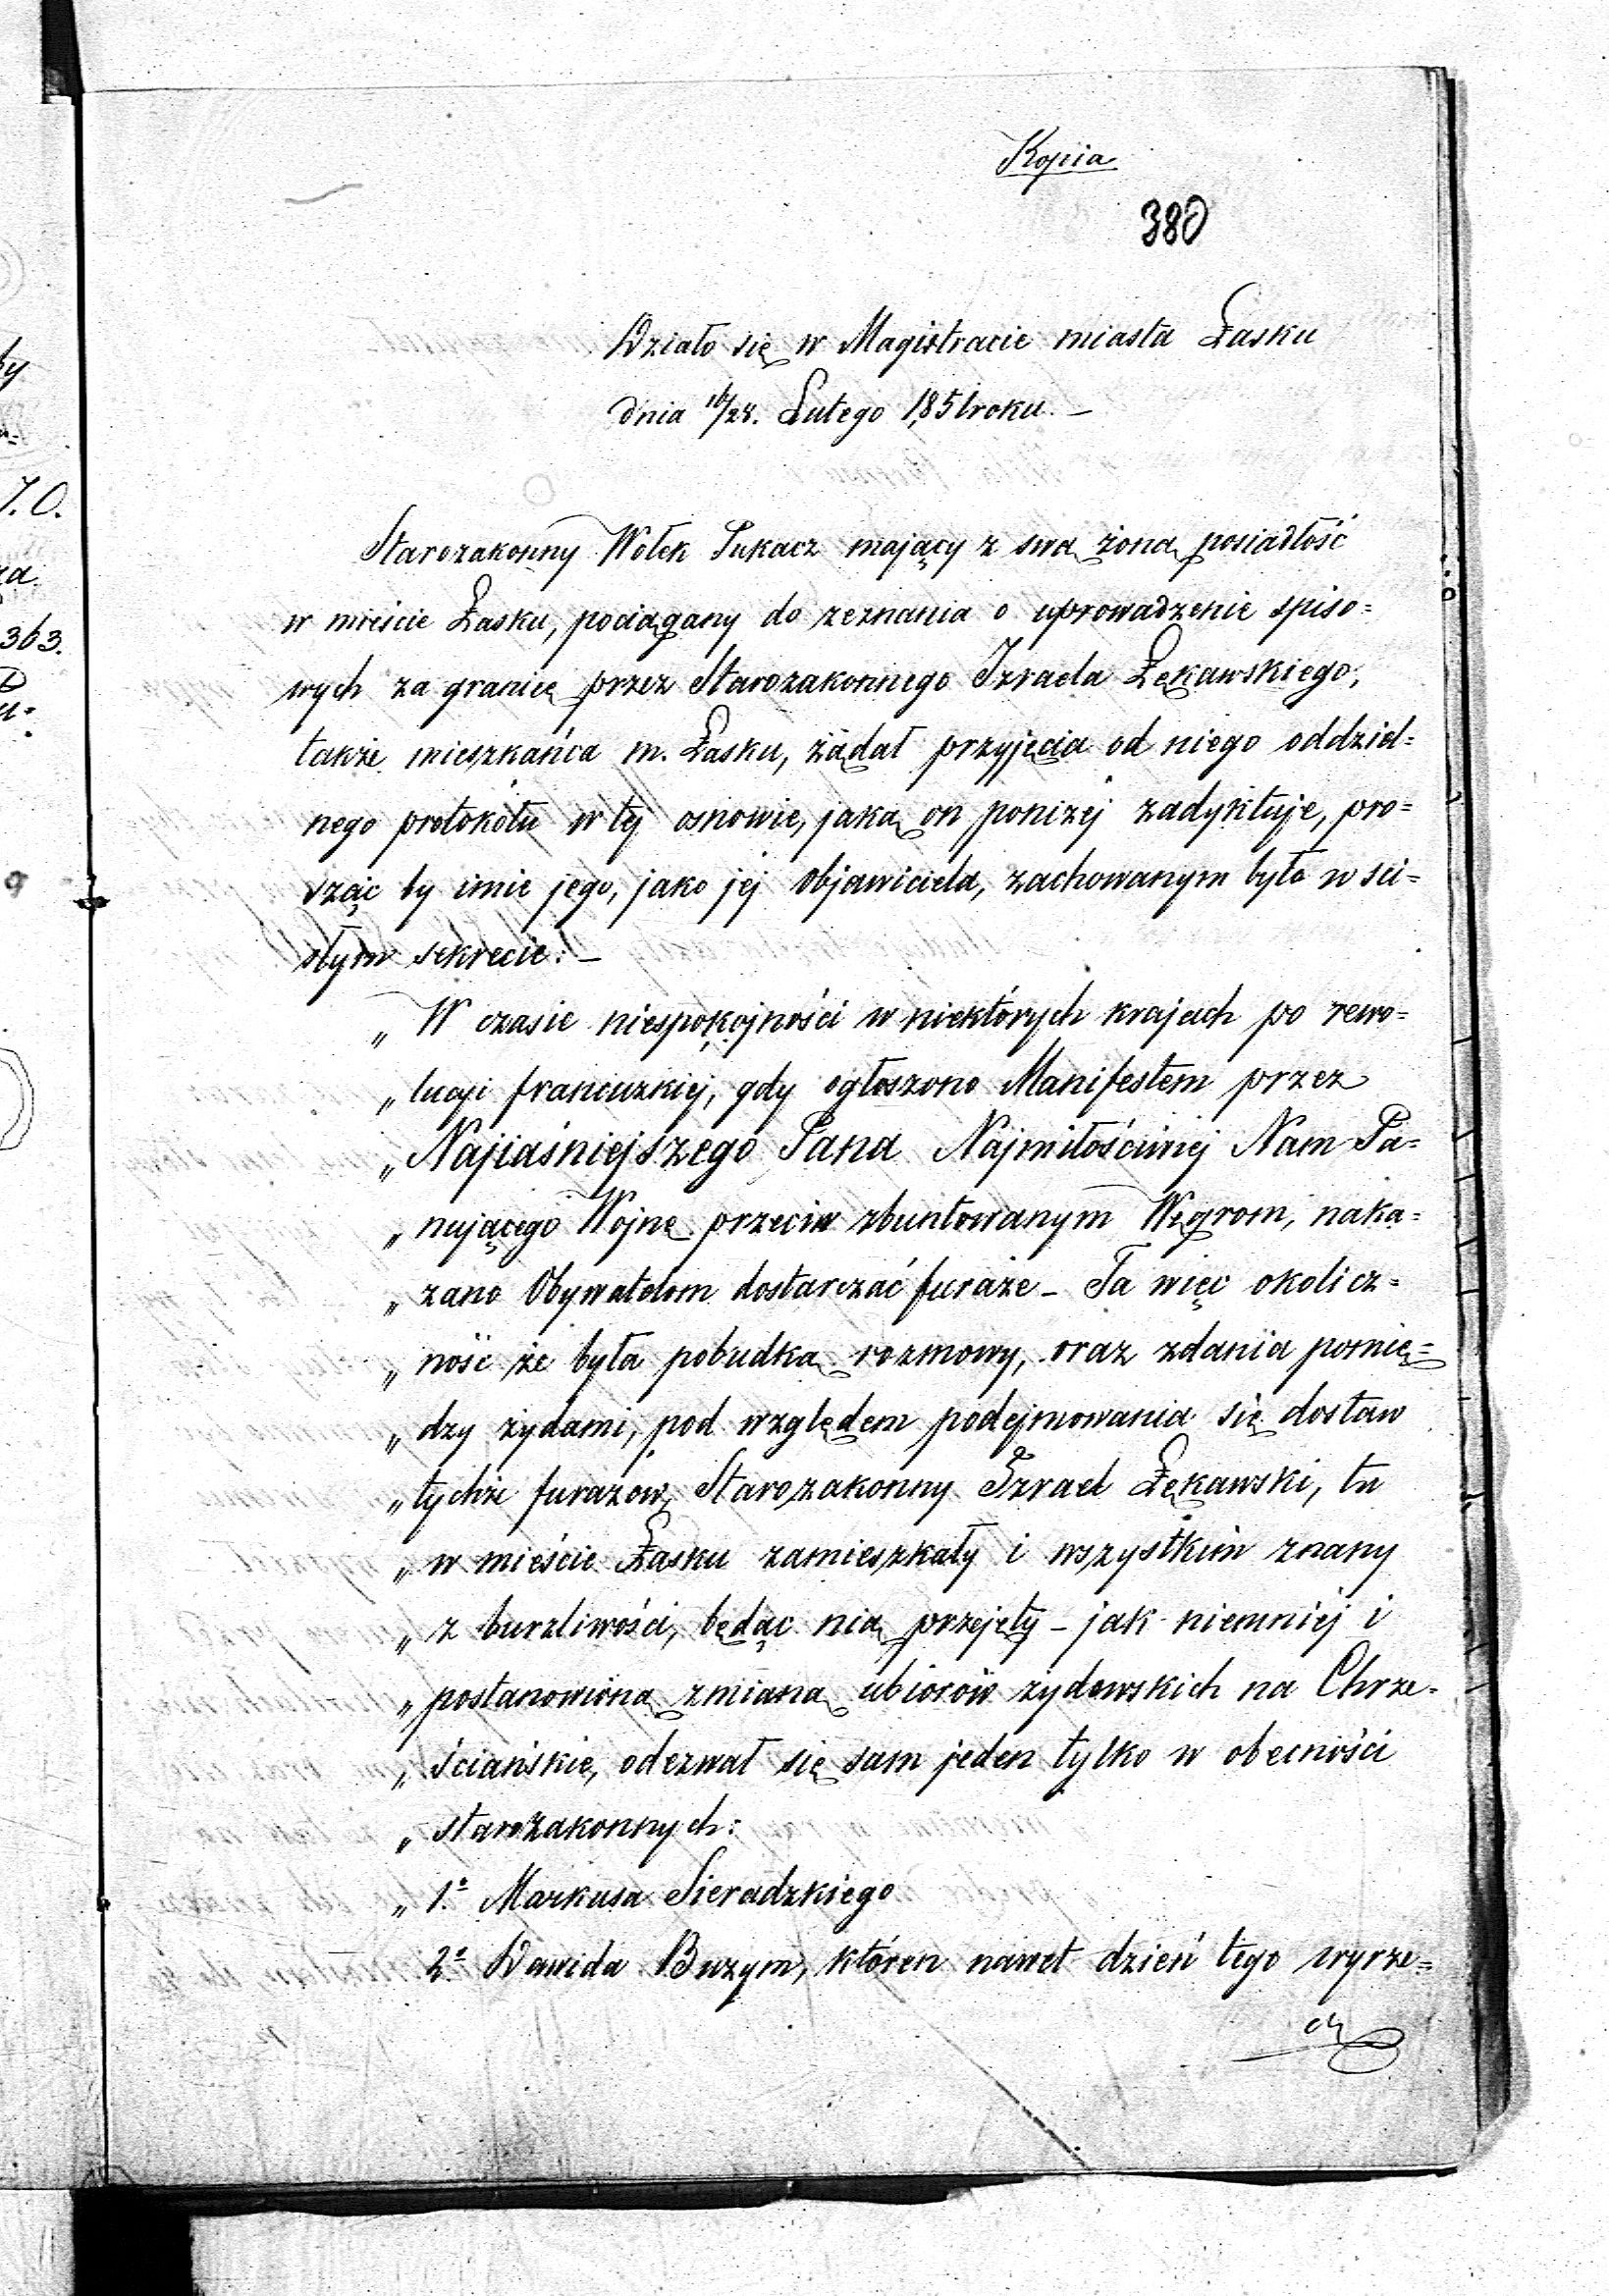 Kopia
380
Działo się w Magistracie miasta Łasku
dnia 16/28. Lutego 1851 roku. –
Starozakonny Wołek Pukacz mający z swą żoną posiadłość
w mieście Łasku, pociągany do zeznania o uprowadzenie spiso=
wych za granicę przez Starozakonnego Izraela Łękawskiego,
także mieszkańca m. Łasku, żądał przyjęcia od niego oddziel=
nego protokółu w tej osnowie, jaką on poniżej zadyktuje, pro=
sząc by imie jego, jako jej objawiciela, zachowanym było w ści=
słym sekrecie: –
„ W czasie niespokojności w niektórych krajach po rewo=
„ lucyi francuzkiej, gdy ogłoszono Manifestem przez
„ Najjaśniejszego Pana Najmiłościwiej Nam Pa=
„ nującego Wojnę przeciw zbuntowanym Węgrom, naka=
„ zano Obywatelom dostarczać furaże – Ta więc okolicz=
„ ność że była pobudką rozmowy, oraz zdania pomię=
„ dzy żydami, pod względem podejmowania się dostaw
„ tychże furażow, Starozakonny Izrael Łękawski, tu
„ w mieście Łasku zamieszkały i wszystkim znany
„ z burzliwości, będąc nią przejęty – jak niemniej i
„ postanowioną zmianą ubiorów żydowskich na Chrze=
„ ściańskie, odezwał się sam jeden tylko w obecności
„ starozakonnych:
„ 1.º Markusa Sieradzkiego
2º Dawida Buzym, któren nawet dzień tego wyrze=
by
7. O.
363.